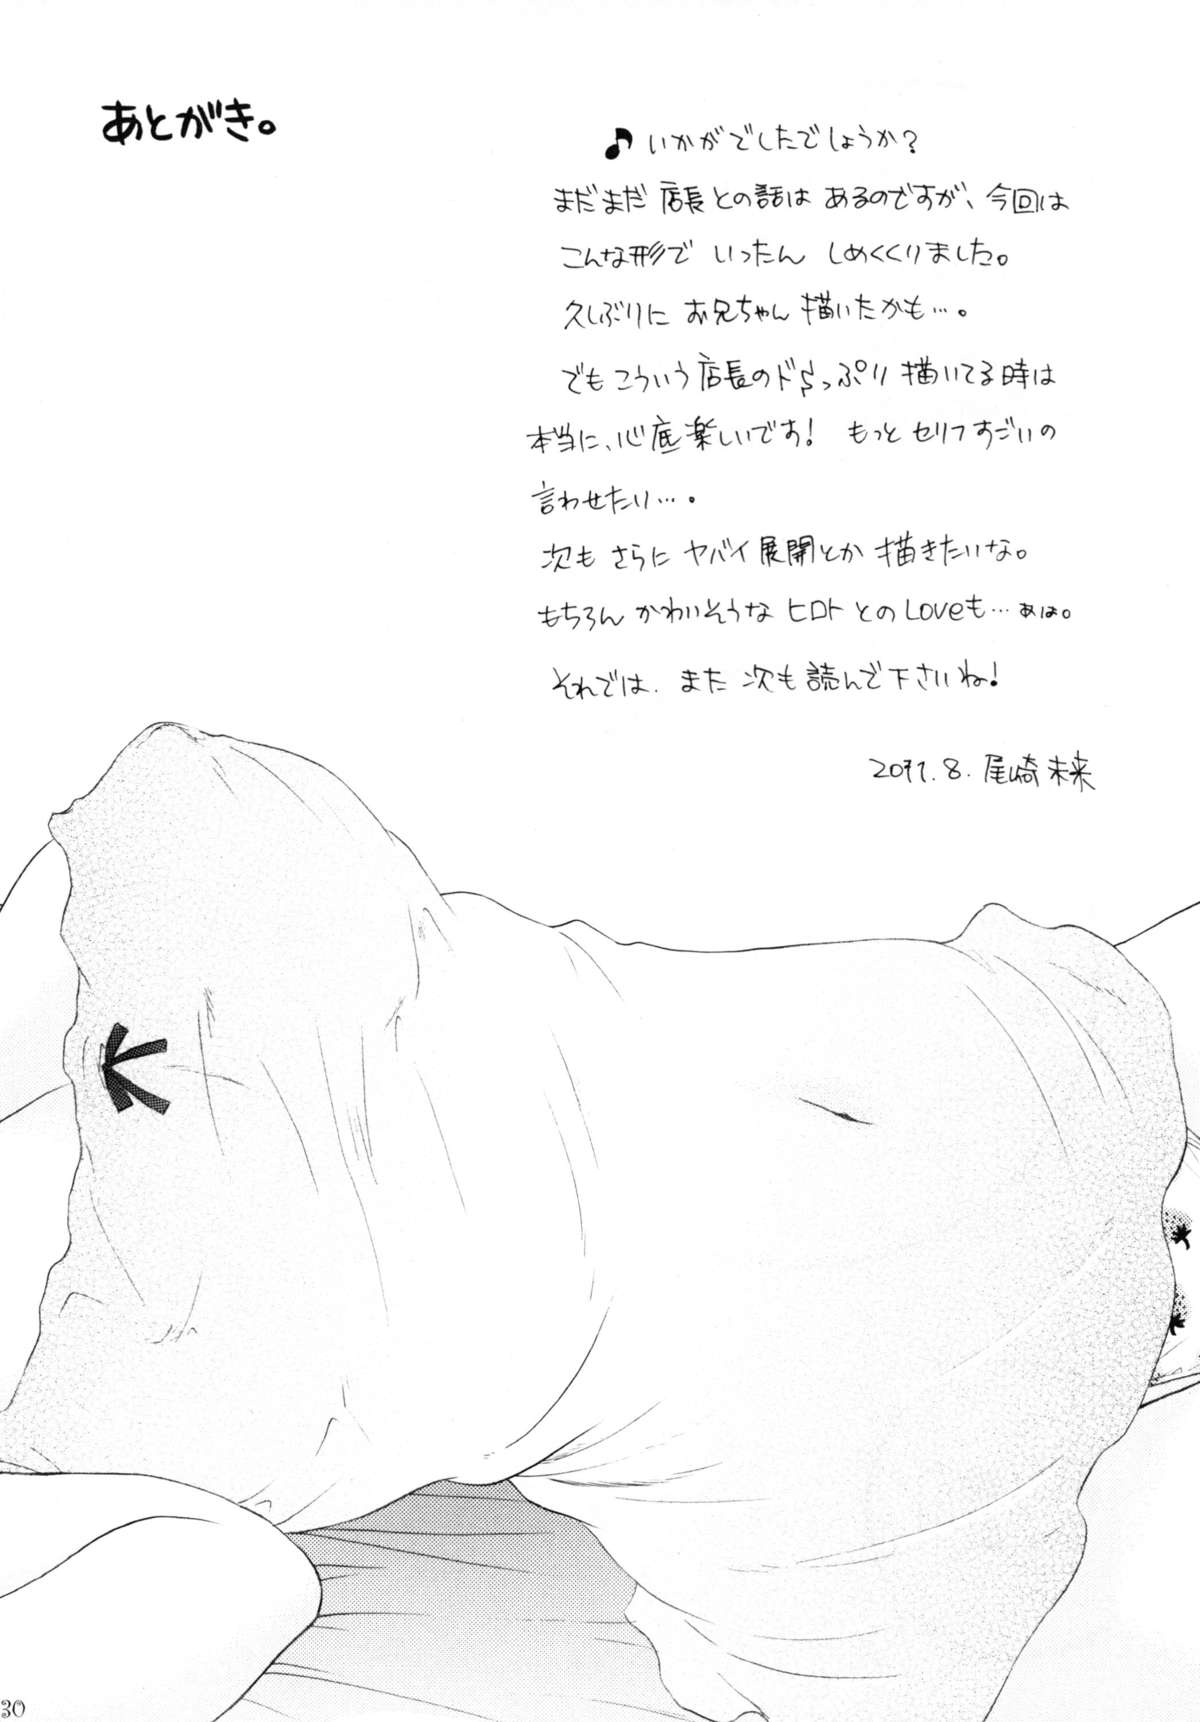 あとがき。
♪ いかがでしたでしょうか?
まだまだ 店長との話は あるのですが、今回は
こんな形で いったん しめくくりました。
久しぶりに お兄ちゃん 描いたかも…。
でも こういう 店長のドSっぷり 描いてる時は
本当に、心底楽しいです! もっと セリフすごいの
言わせたい…。
次も さらに ヤバイ展開とか 描きたいな。
もちろん かわいそうな ヒロト とのLoveも…ぁは。
それでは、また 次も 読んで下さいね!
2011.8. 尾崎未来
30